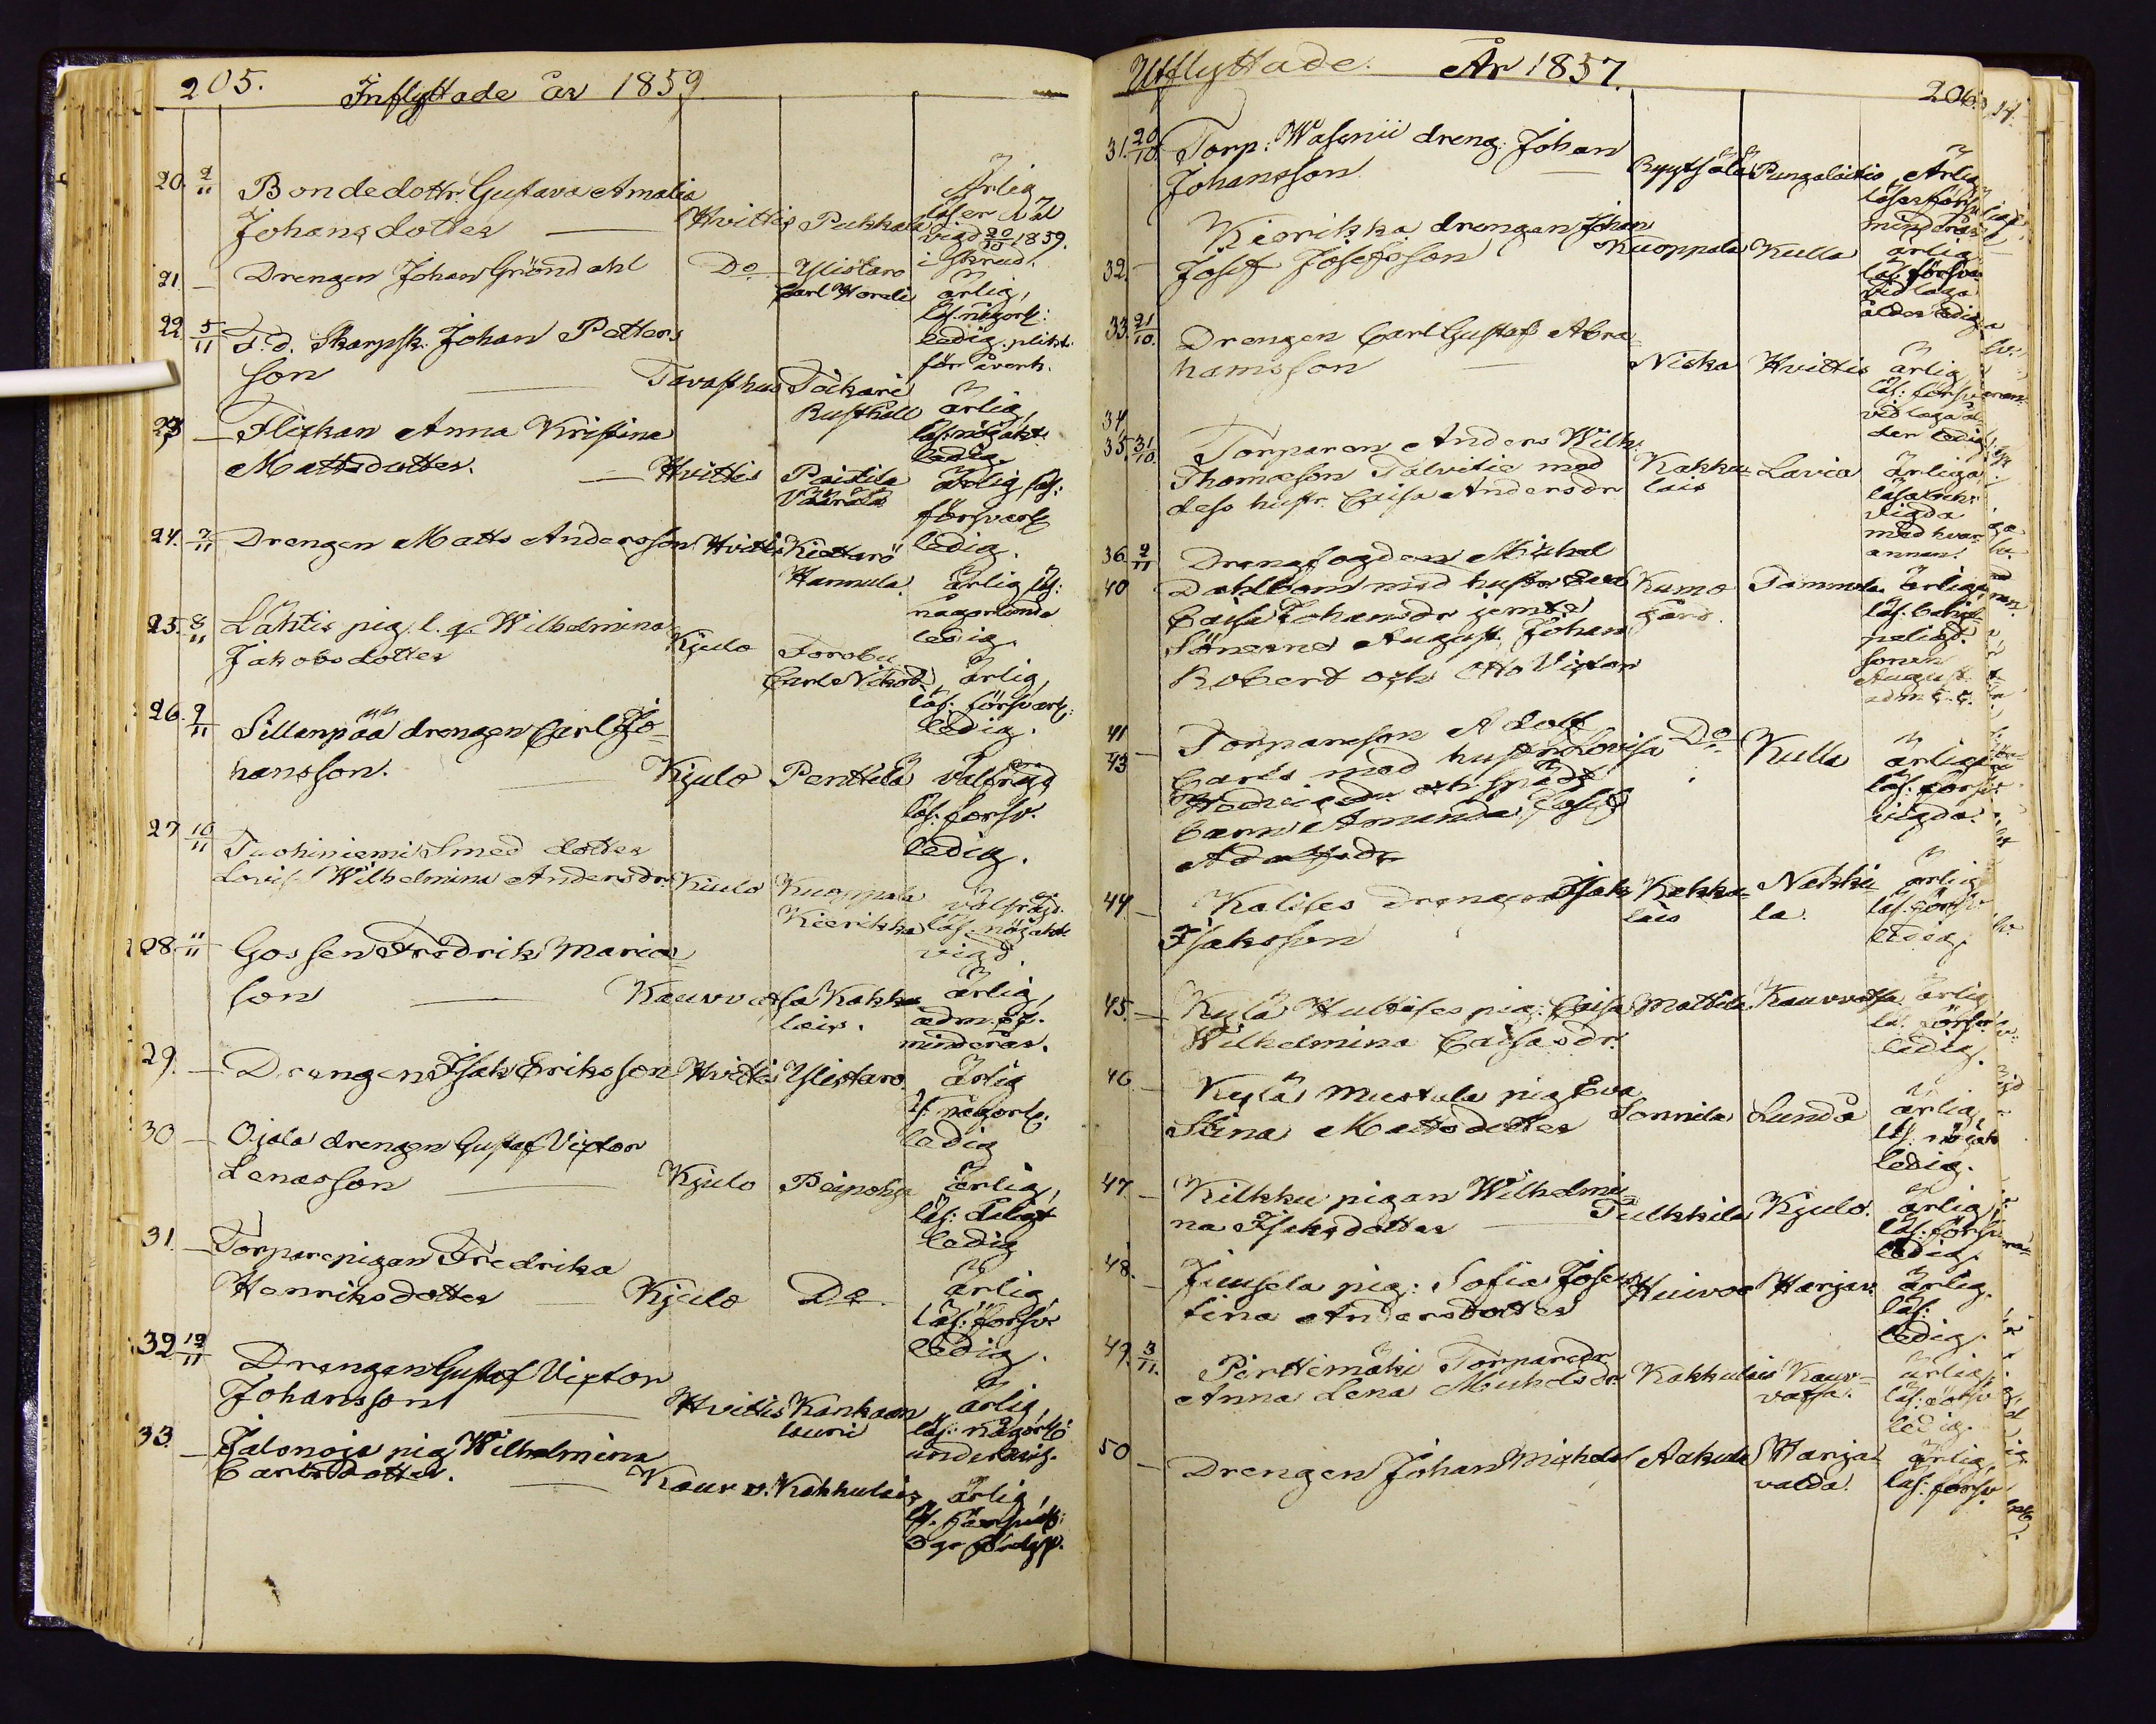 205.
Inflyttade år 1859
20. 2/11 Bondedottr. Gustava Amalia
Johansdotter — Hvittis Pukkala
Ärlig
läser väl
vigd 20/10 1859.
i skrud.
21. — Drengen Johan Gröndahl Do Ylistaro
Carl Horeli
ärlig,
läs. någorl:
ledig. plikt.
för åverk.
22. 5/11 F.d. Skarpsk. Johan Petters
son — Tavasthus Täckari
Rusthåll
ärlig,
läs: nöjakt.
ledig
23 — Flickan Anna Kristina
Mattsdotter. — Hvittis Paistila
Väärälä
ärlig, läs:
försvarl.
ledig.
24. 7/11 Drengen Matts Andersson Hvittis Kiettarö
Hannula.
ärlig, läs:
någorlunda
ledig.
25. 8/11 Lähtis pig. l. g. Wilhelmina
Jakobsdotter Kjulo Torobu
ärlig,
läs: försvarl:
ledig.
26. 9/11 Sillanpää drengen Carl Jo-
hansson. — Kjulo Penttilä
välfrägd
läs: försv.
ledig.
27 10/11 Tuohiniemi Smed dotter
Lovis. Wilhelmina Andersdr. Kiulo Kuoppala
Kierikka
välfrägd.
läs. nöjakt.
vigd.
28. 11 Gossen Fredrik Maria-
son — Kauvvatsa Kakku-
lais.
ärlig,
adm. ej.
minderår.
29. — Drengen Isak Eriksson Hvittis Ylistaro
ärlig
l. någorl.
ledig
30 — Ojala drengen Gustaf Victor
Lenasson — Kjulo Peipohja
ärlig,
läs:
ledig
31. — Torparepigan Fredrika
Henriksdotter — Kjulo Do.
ärlig,
läs: försv.
ledig.
32. 12/11 Drengen Gustaf Victor
Johansson — Hvittis Kankaan
lauri
ärlig,
läs: någorl.
underårig.
33. — Jalonoja pig. Wilhelmina
Carlsdotter. — Kauvv. Kakkulais
ärlig,
Utflyttade. År 1857.
206.
31. 20/10. Torp: Wasenii dreng: Johan
Johansson — Ryytsälä Pungalaitio
Ärlig
läser försv
minderår.
32. — Kierikka drengen Johan
Josef Josefsson Kuoppala Kulla
ärlig
läs. försva
vid laga
ålder ledig
33. 21/10. Drengen Carl Gustaf Abra-
hamsson — Niska Hvittis
ärlig
läs: försv
vid laga ål-
der ledig
34
35. 31/10. Torparen Anders Wilh.
Thomasson Talvitie med Kakku- Lavia
dess hustr. Caisa Andersdr lais
ärliga
läsa
vigda
med hvar-
annan.
36. 2/11 Drengfogden Michel
40 Dahlbom med hustr. Eva Kumo Tammela
Caisa Johansdr jemte gård.
Sönerne August, Johan,
Robert och Otto Victor
ärliga
läs.
sonen
August
adm. ej.
41
43 — Torpareson Adolf Do Kulla
Carls med hustru Lovisa
barn Amanda Josef
ärliga
läs. försv.
vigda.
44 — Kalises drengen Isak Kakku- Nakki-
Isaksson lais la.
ärlig
läs. försv
ledig.
45. — Kylä Huttises pig: Caisa Mattila Kauvvatsa
Wilhelmina Caisasdr.
ärlig
läs. försv.
ledig.
46 — Kylä Mustula pig Eva
Stina Mattsdotter Sonnila Lunda
ärlig
läs: nöjak
ledig.
47 — Kilkku pigan Wilhelmi-
na Isaksdotter — Pulkkila Kjulo.
ärlig,
läs: försv
ledig.
48. — Juusela pig: Sofia Josef
tina Andersdotter Huivoo Harjav.
ärlig.
läs:
ledig.
49. 3/11. Pirttimäki Torparedr
Anna Lena Michelsdr. Kakkulais Kauv-
vatsa.
ärlig
läs: försv
ledig.
50 — Drengen Johan Michels Aakula Harja-
valda.
ärlig,
läs: försv